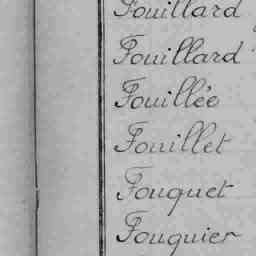 Fouillard
Fouillard
Fouillée
Fouillet
Fouquet
Fouquier